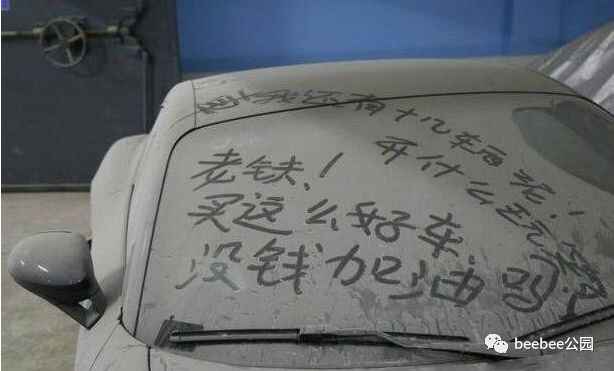 我还有十几车
开什么玩笑
老铁！
买这么好车，
没钱加油吗？
beebee公园